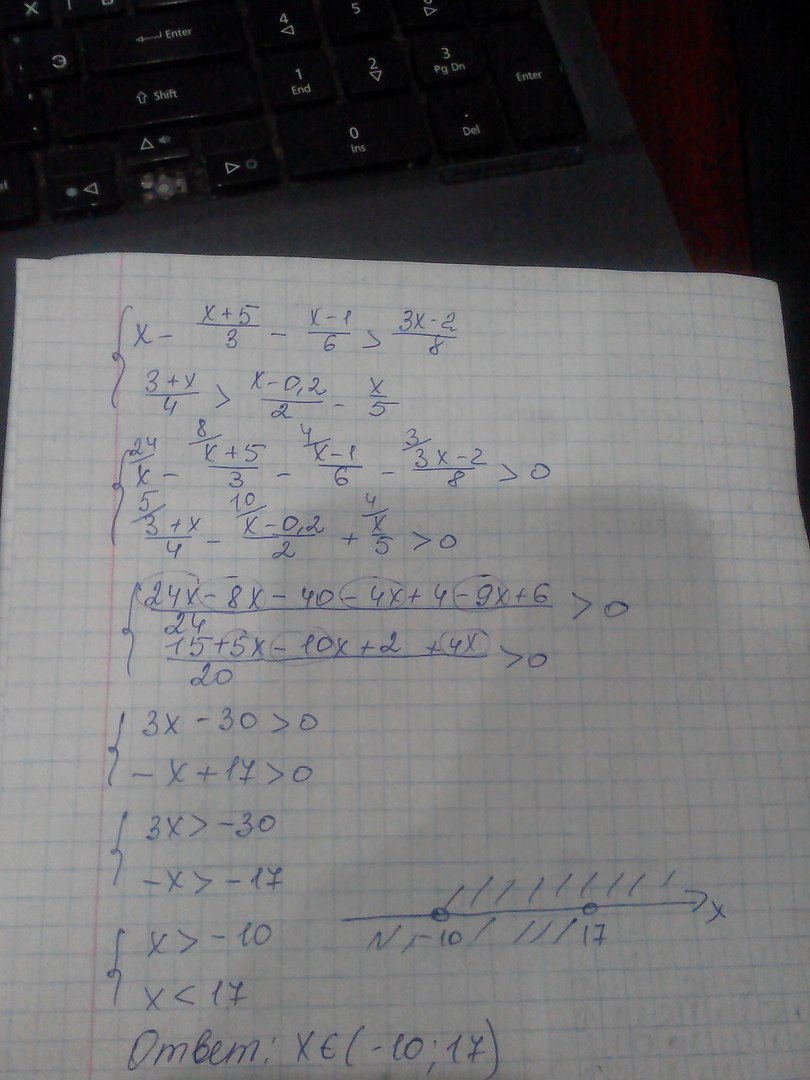 5
4
Enter
Э
3
Pg Dn
2
1
End
Enter
Shift
0
Ins
.
Del
{ x - (x+5)/3 - (x-1)/6 > (3x-2)/8
(3+x)/4 > (x-0,2)/2 - x/5
{ 24/ x - 8/ (x+5)/3 - 4/ (x-1)/6 - 3/ (3x-2)/8 > 0
5/ (3+x)/4 - 10/ (x-0,2)/2 + 4/ x/5 > 0
{ (24x-8x-40-4x+4-9x+6)/24 > 0
(15+5x-10x+2+4x)/20 > 0
{ 3x-30>0
-x+17>0
{ 3x>-30
-x>-17
{ x>-10
x<17
-10 17 x
Ответ: x∈(-10;17)